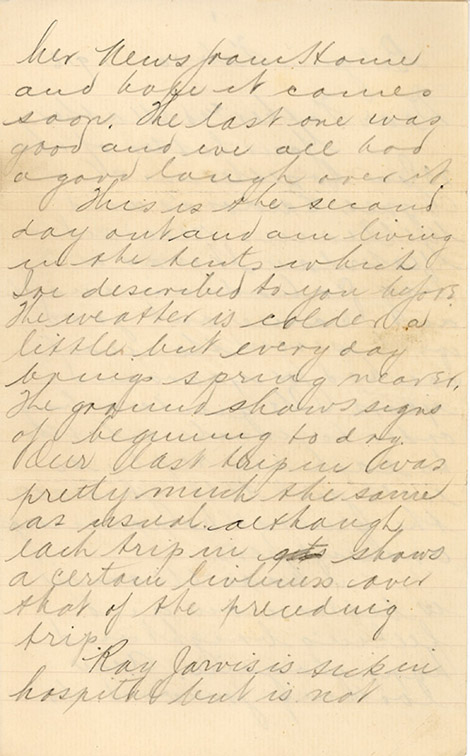 her News from Home
and hope it comes
soon. The last one was
good and we all had
a good laugh over it.
This is the second
day out and am living
in the tents which
I've described to you before.
The weather is colder a
little but every day
brings spring nearer.
The ground shows signs
of begining to dry.
Our last trip in was
pretty much the same
as usual. although
each trip in shows
a certain livliness over
that of the preceding
trip.
Ray Jarvis is sick in
hospital but is not